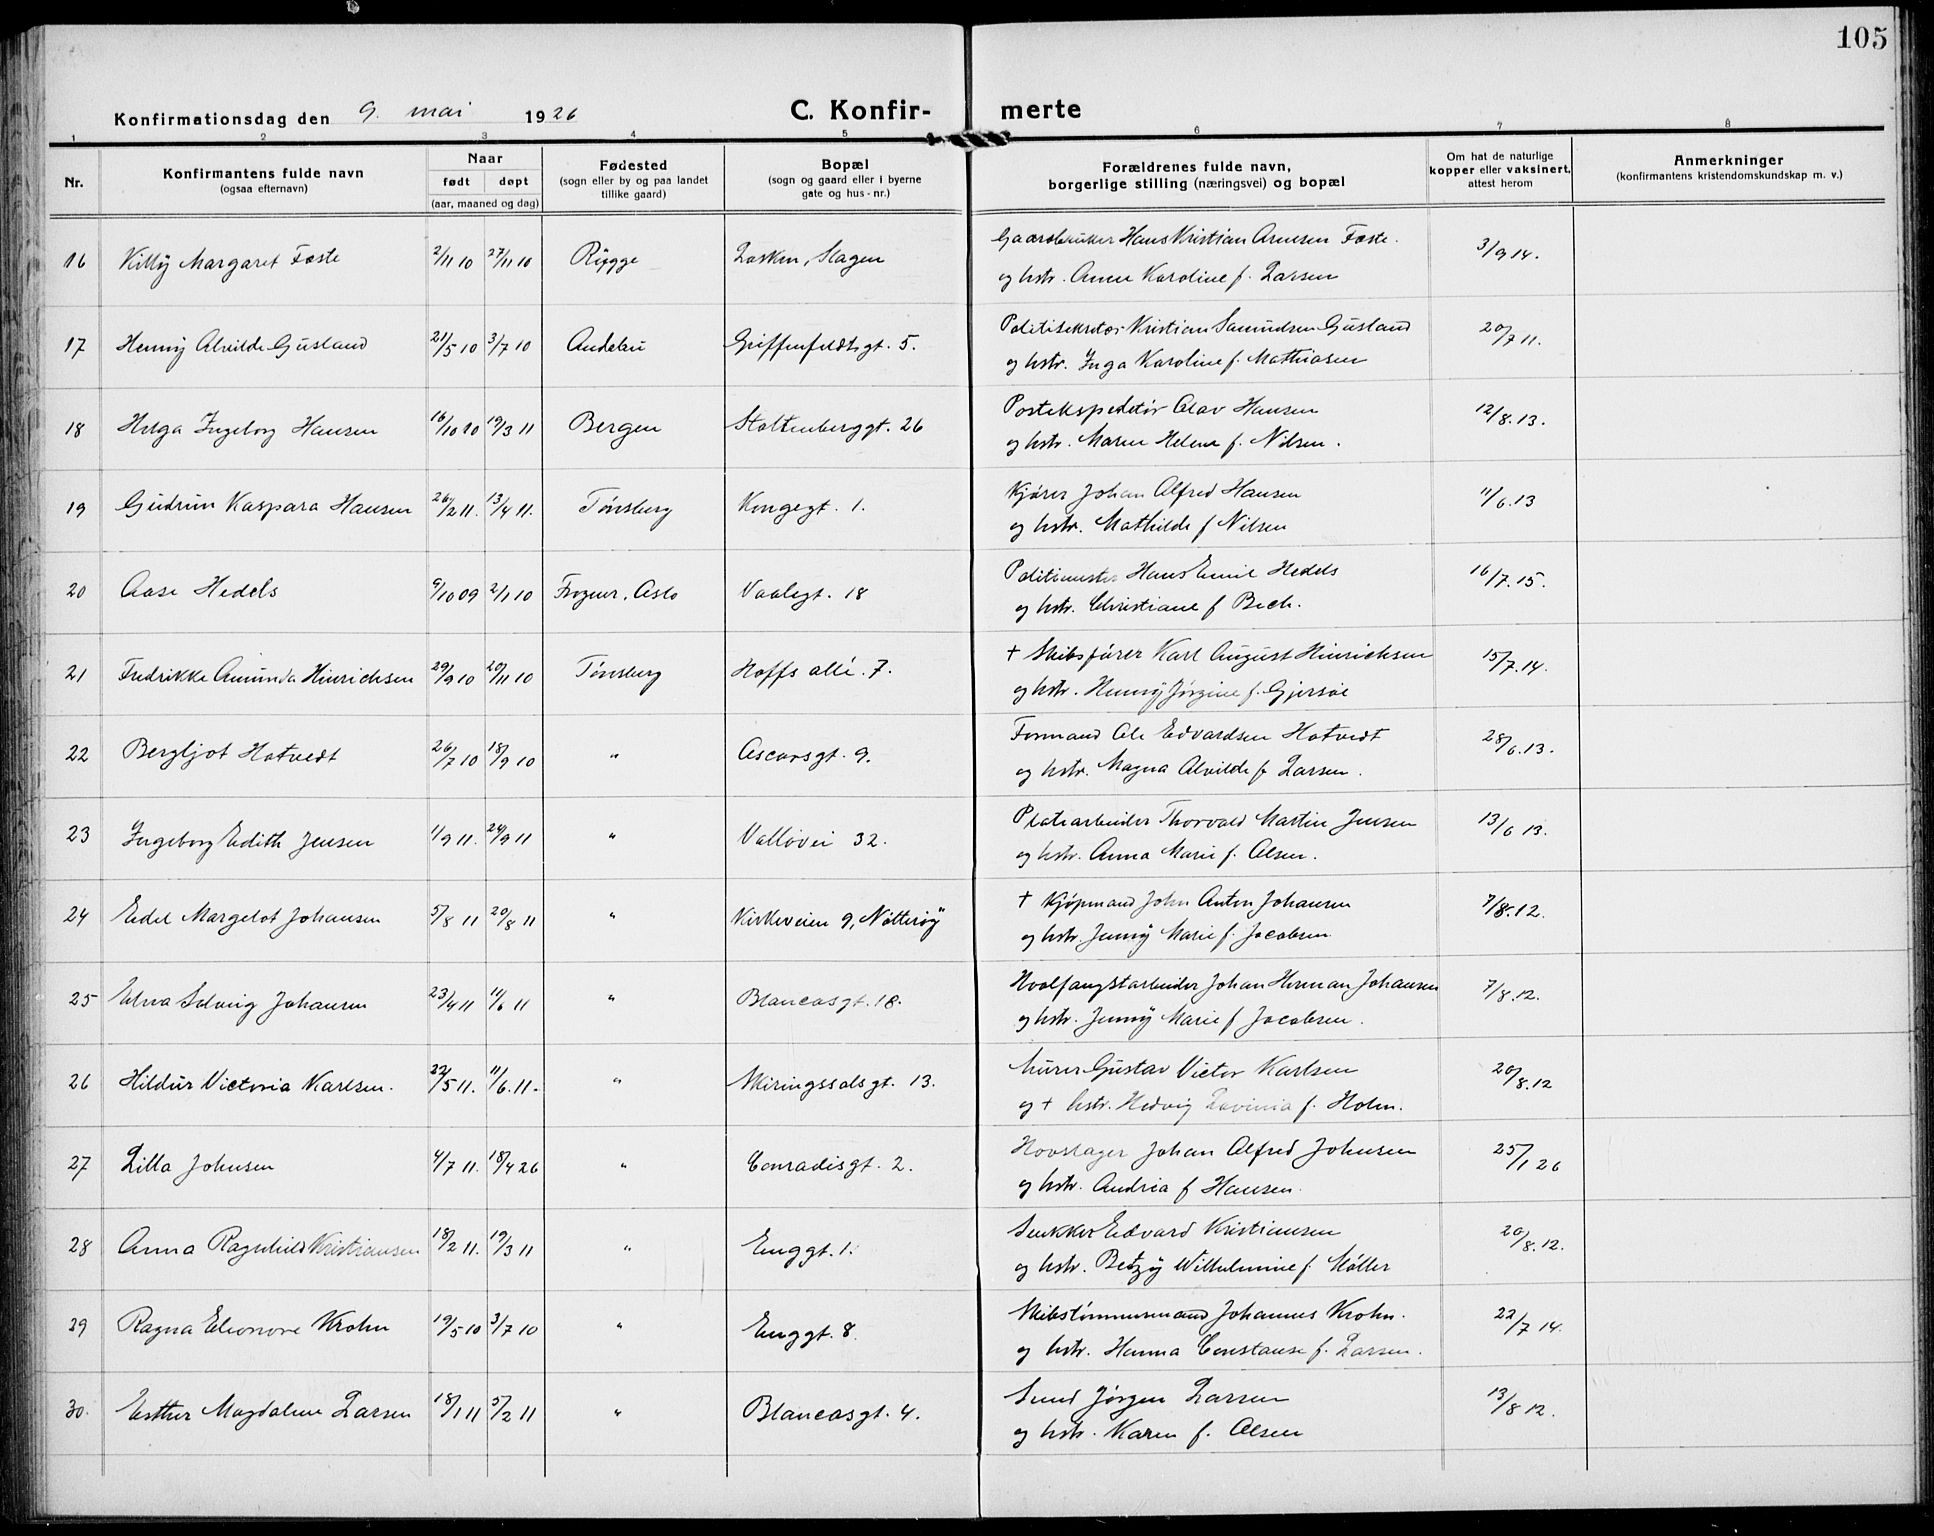 105
Konfirmationsdag den 9. mai 1926
C. Konfirmerte
1 2 3 4 5 6 7 8
Nr.
Konfirmantens fulde navn
(ogsaa efternavn)
Naar
født døpt
(aar, maaned og dag)
Fødested
(sogn eller by og paa landet
tillike gaard)
Bopæl
(sogn og gaard eller i byerne
gate og hus-nr.)
Forældrenes fulde navn,
borgerlige stilling (næringsvei) og bopæl
Om hat de naturlige
kopper eller vaksinert,
attest herom
Anmerkninger
(konfirmantens kristendomskundskap m. v.)
16 Killy Margaret Føste 2/11 10 27/11 10 Rygge Slagen Gaardbruker Hans Kristian Arnesen Føste. 3/9 14.
og hstr. Anne Karoline f. Larsen
17 Henny Alvilde Gusland 21/5 10 3/7 10 Andebu Griffenfeldtsgt. 5. Politisekretær Kristian Samundsen Gusland 20/7 11.
og hstr. Inga Karoline f. Mathiasen
18 Helga Ingeborg Hansen 16/10 10 19/3 11 Bergen Stoltenberggt. 26 Postekspeditør Olav Hansen 12/8. 13.
og hstr. Maren Helene f. Nilsen.
19 Gudrun Kaspara Hansen 26/2 11. 13/4 11. Tønsberg Kongegt. 1. Kjører Johan Alfred Hansen 11/6. 13
og hstr. Mathilde f Nilsen
20 Aase Hedels 9/10 09 2/1 10 Frogner, Oslo Vaalegt. 18 Politimester Hans Emil Hedels 16/7. 15.
og hstr. Christiane f Bech.
21 Fredrikke Amunda Hinrichsen 29/9 10 20/11 10 Tønsberg Hoffs allé. 7. + Skibsfører Karl August Hinrichsen 15/7. 14.
og hstr. Henny Jørgine f. Gjersøe
22 Bergljot Hotvedt 26/7 10 18/9 10 " Oscarsgt. 9. Formand Ole Edvardsen Hotvedt 28/6. 13.
og hstr. Magna Alvilde f. Larsen.
23 Ingeborg Edith Jensen 1/9 11. 24/9 11 " Valløvei 32. Platearbeider Thorvald Martin Jensen 13/6 13.
og hstr. Anna Marie f. Olsen.
24 Edel Margelot Johansen 5/8 11 20/8 11 " Kirkeveien 9, Nøtterøy + Kjøpmand John Anton Johansen 7/8. 12.
og hstr. Jenny Marie f. Jacobsen.
25 Elna Solveig Johansen 23/4 11 11/6 11 " Blancasgt. 18. Hvalfangstarbeider Johan Herman Johansen 7/8. 12.
og hstr. Jenny Marie f Jacobsen.
26 Hildur Victoria Karlsen. 22/5 11. 11/6. 11. " Skiringssalsgt. 13. Murer Gustav Victor Karlsen 20/8. 12
og + hstr. Hedvig Lovinia f. Holm.
27 Lilla Johnsen 4/7 11. 18/4 26 " Conradisgt. 2. Hovslager Johan Alfred Johnsen 25/1 26
og hstr. Andrea f Hansen.
28 Anna Ragnhild Kristiansen 18/2 11. 19/3 11 " Enggt. 1. Snekker Edvard Kristiansen 20/8. 12.
og hstr. Betzy Wilhelmine f. Møller
29 Ragna Eleonore Krohn 19/5 10 3/7 10 " Enggt. 8. Skibstømmermand Johannes Krohn. 22/7 14.
og hstr. Hanna Constanse f. Larsen.
30. Esther Magdalene Larsen 18/1 11 5/2 11 " Blancasgt. 4. Smed Jørgen Larsen 13/8 12.
og hstr. Karen f. Olsen